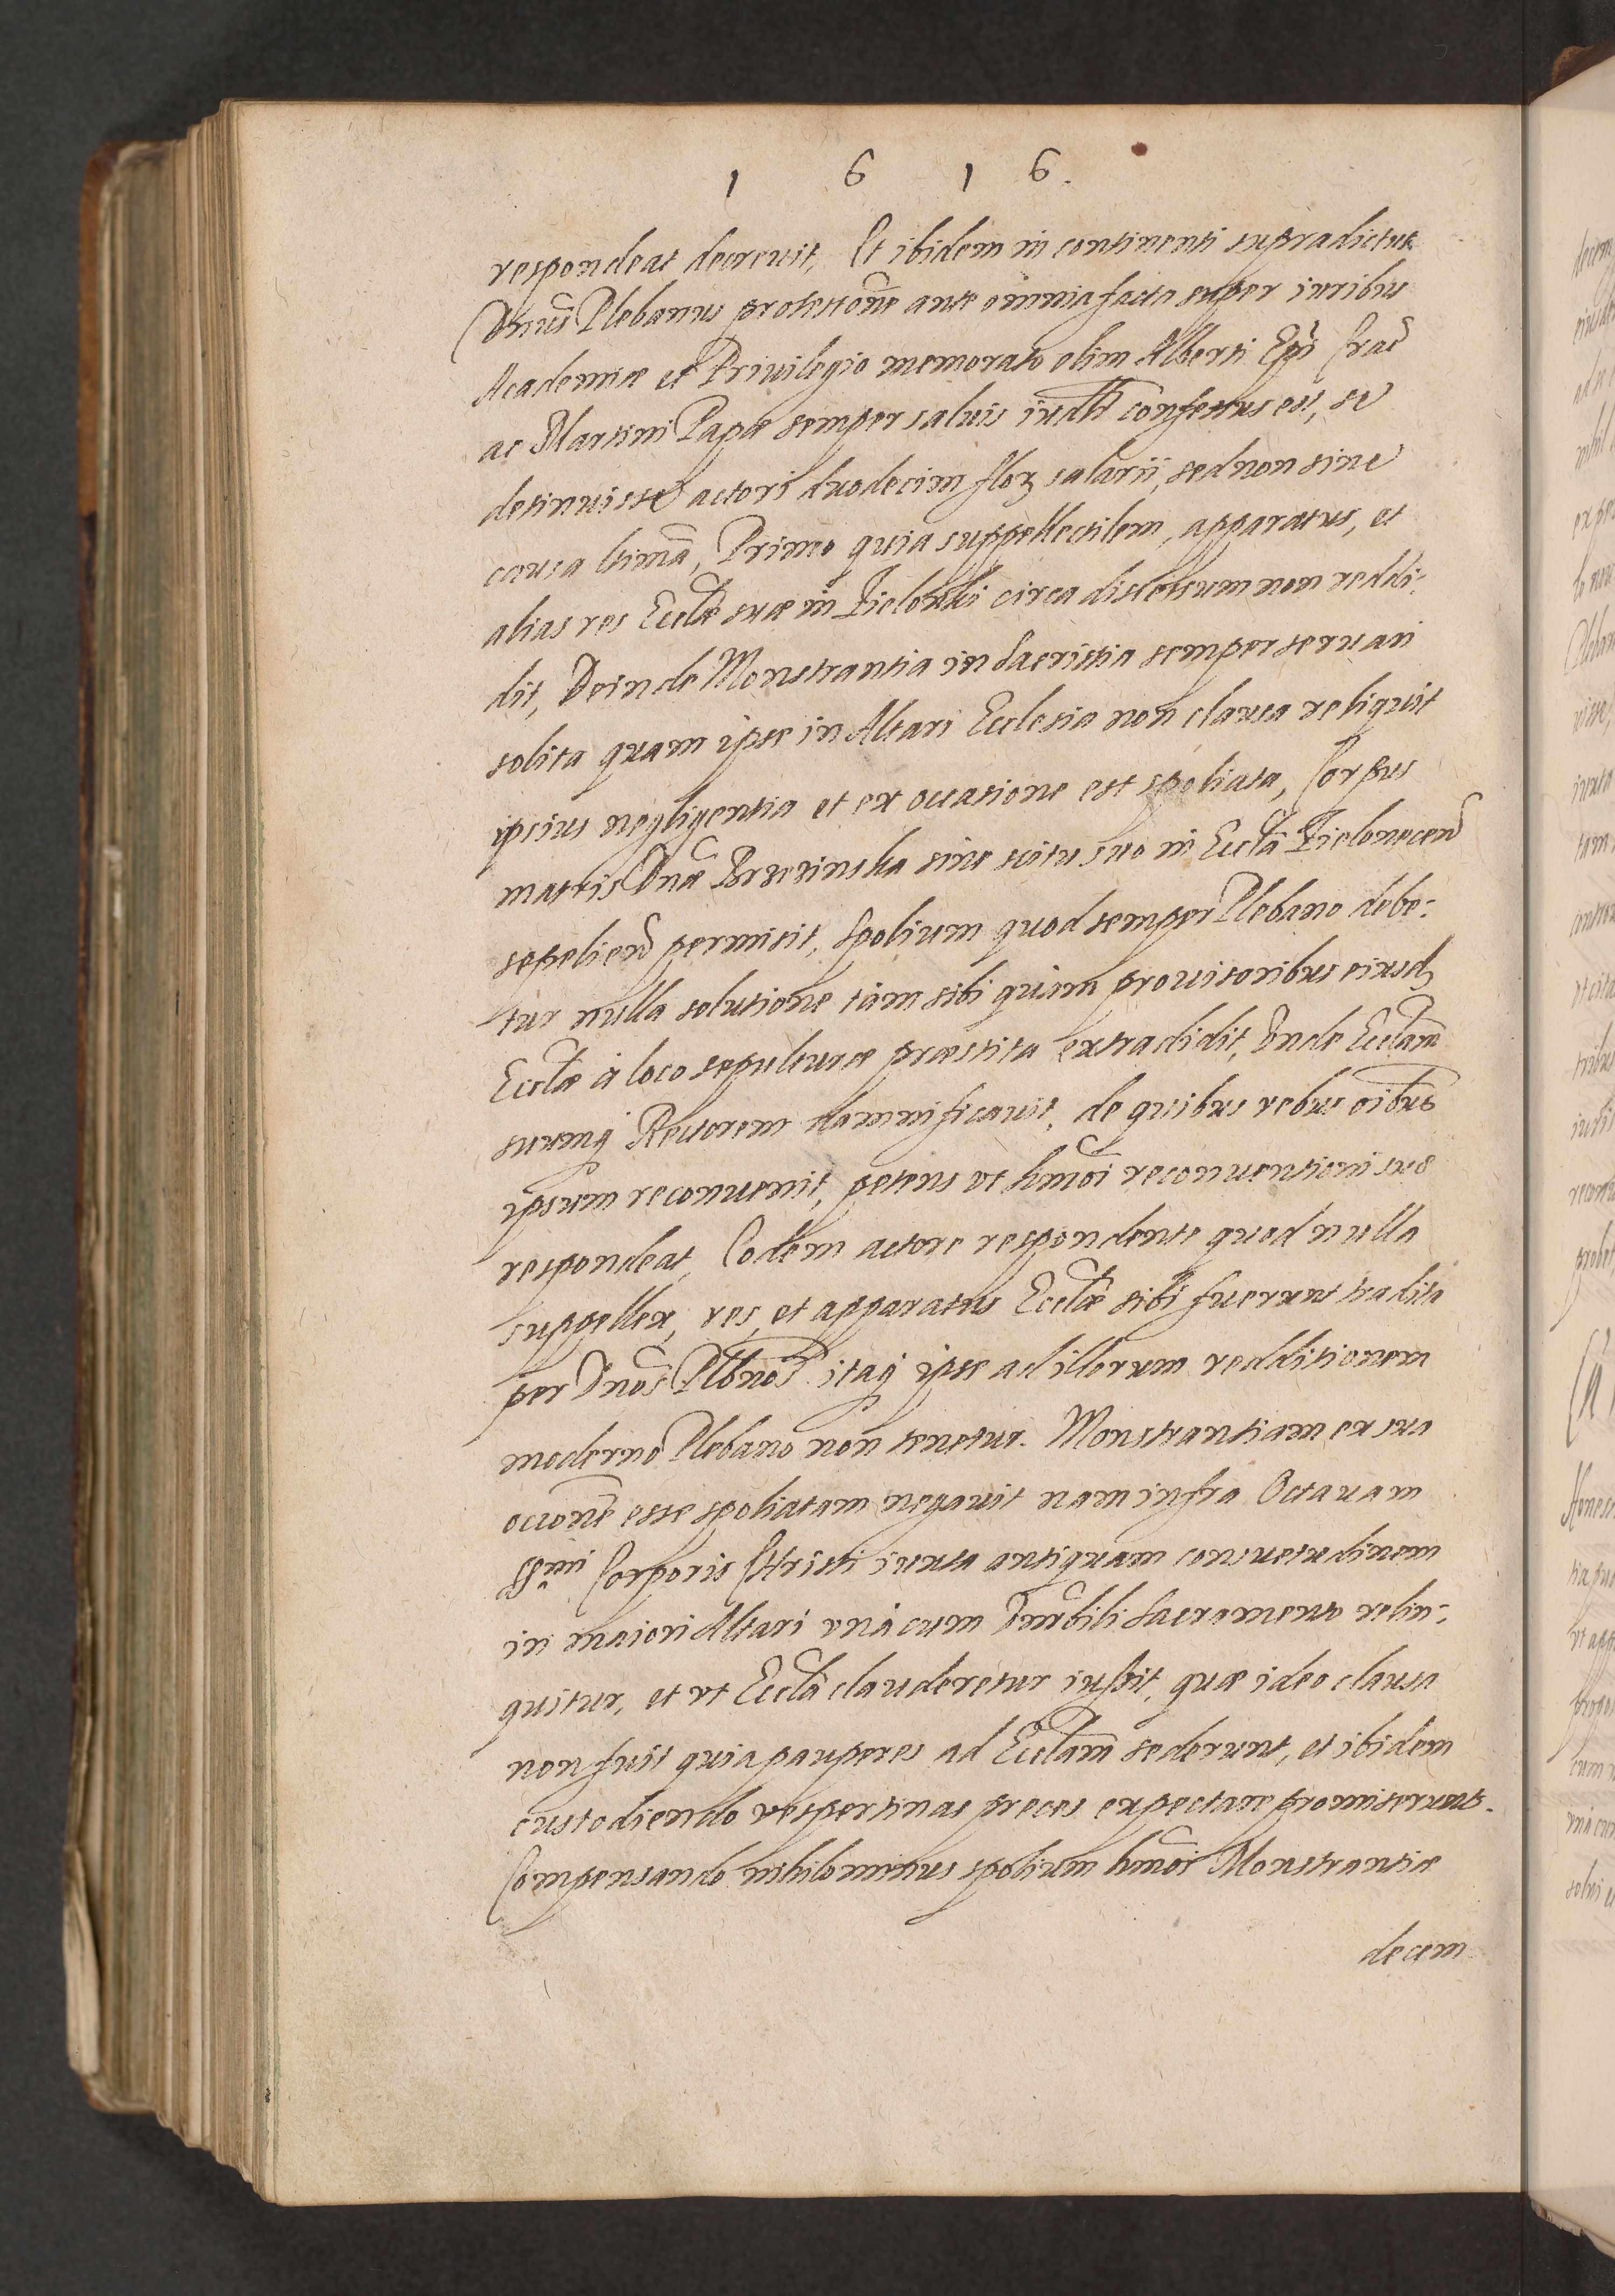 1 6 1 6.
respondeat decreuit, Et ibidem in continenti supradictus
Dnus Plebanus protestone ante omnia facta super iuribus
Academiæ et Priuilegio memorato olim Alberti Epi Crac
ac Martini Papæ semper saluis iudlr confessus est, se
detinuisse actori duodecim flor salarii, sed non sine
causa ltima, Primo quia suppellectilem, apparatus, et
alias res Ecclæ suæ in Zielonki circa discessum non reddi-
dit, Deinde Monstrantia in Sacristia semper seruari
solita quam ipse in Altari Ecclesia non clausa reliquit
ipsius negligentia et ex occasione est spoliata, Corpus
matris Dnæ Brzezinska sine scitu suo in Eccla Zielonecen
sepelien permisit, Spolium quod semper Plebano debe-
tur nulla solutione tam sibi quam prouisoribus eiusd
Ecclæ à loco sepulturæ præstita extradidit, Vnde Ecclam
suumq Rectorem damnificauit, de quibus rebus oibus
ipsum reconuenit, petens vt hmoi reconuentioni suæ
respondeat, Eodem actore respondente quod nulla
suppellex, res, et apparatus Ecclæ sibi fuerunt tradita
per Dnos Plbnos itaq ipse ad illorum redditionem
moderno Plebano non tenetur. Monstrantiam ex sua
occone esse spoliatam negauit nam infra Octauam
SSmi Corporis Christi iuxta antiquam consuetudinem
in maiori Altari vnà cum Venrbili Sacramento relin-
quitur, et vt Eccla clauderetur iussit, quæ ideo clausa
non fuit quia pauperes ad Ecclam sederunt, et ibidem
custodiendo vespertinas preces expectare promiserunt.
Compensando nihilominus spolium hmoi Monstrantiæ
decem